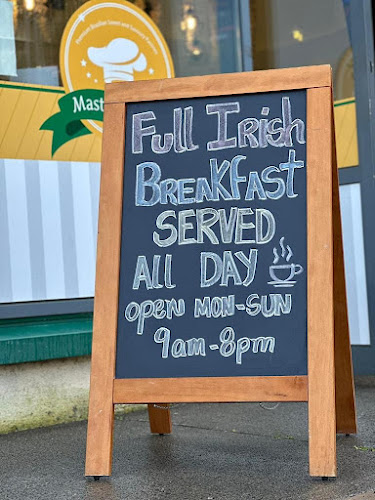 Full Irish
BREAKFAST
SERVED
ALL DAY
OPEN MON-SUN
9am-8pm
Mast